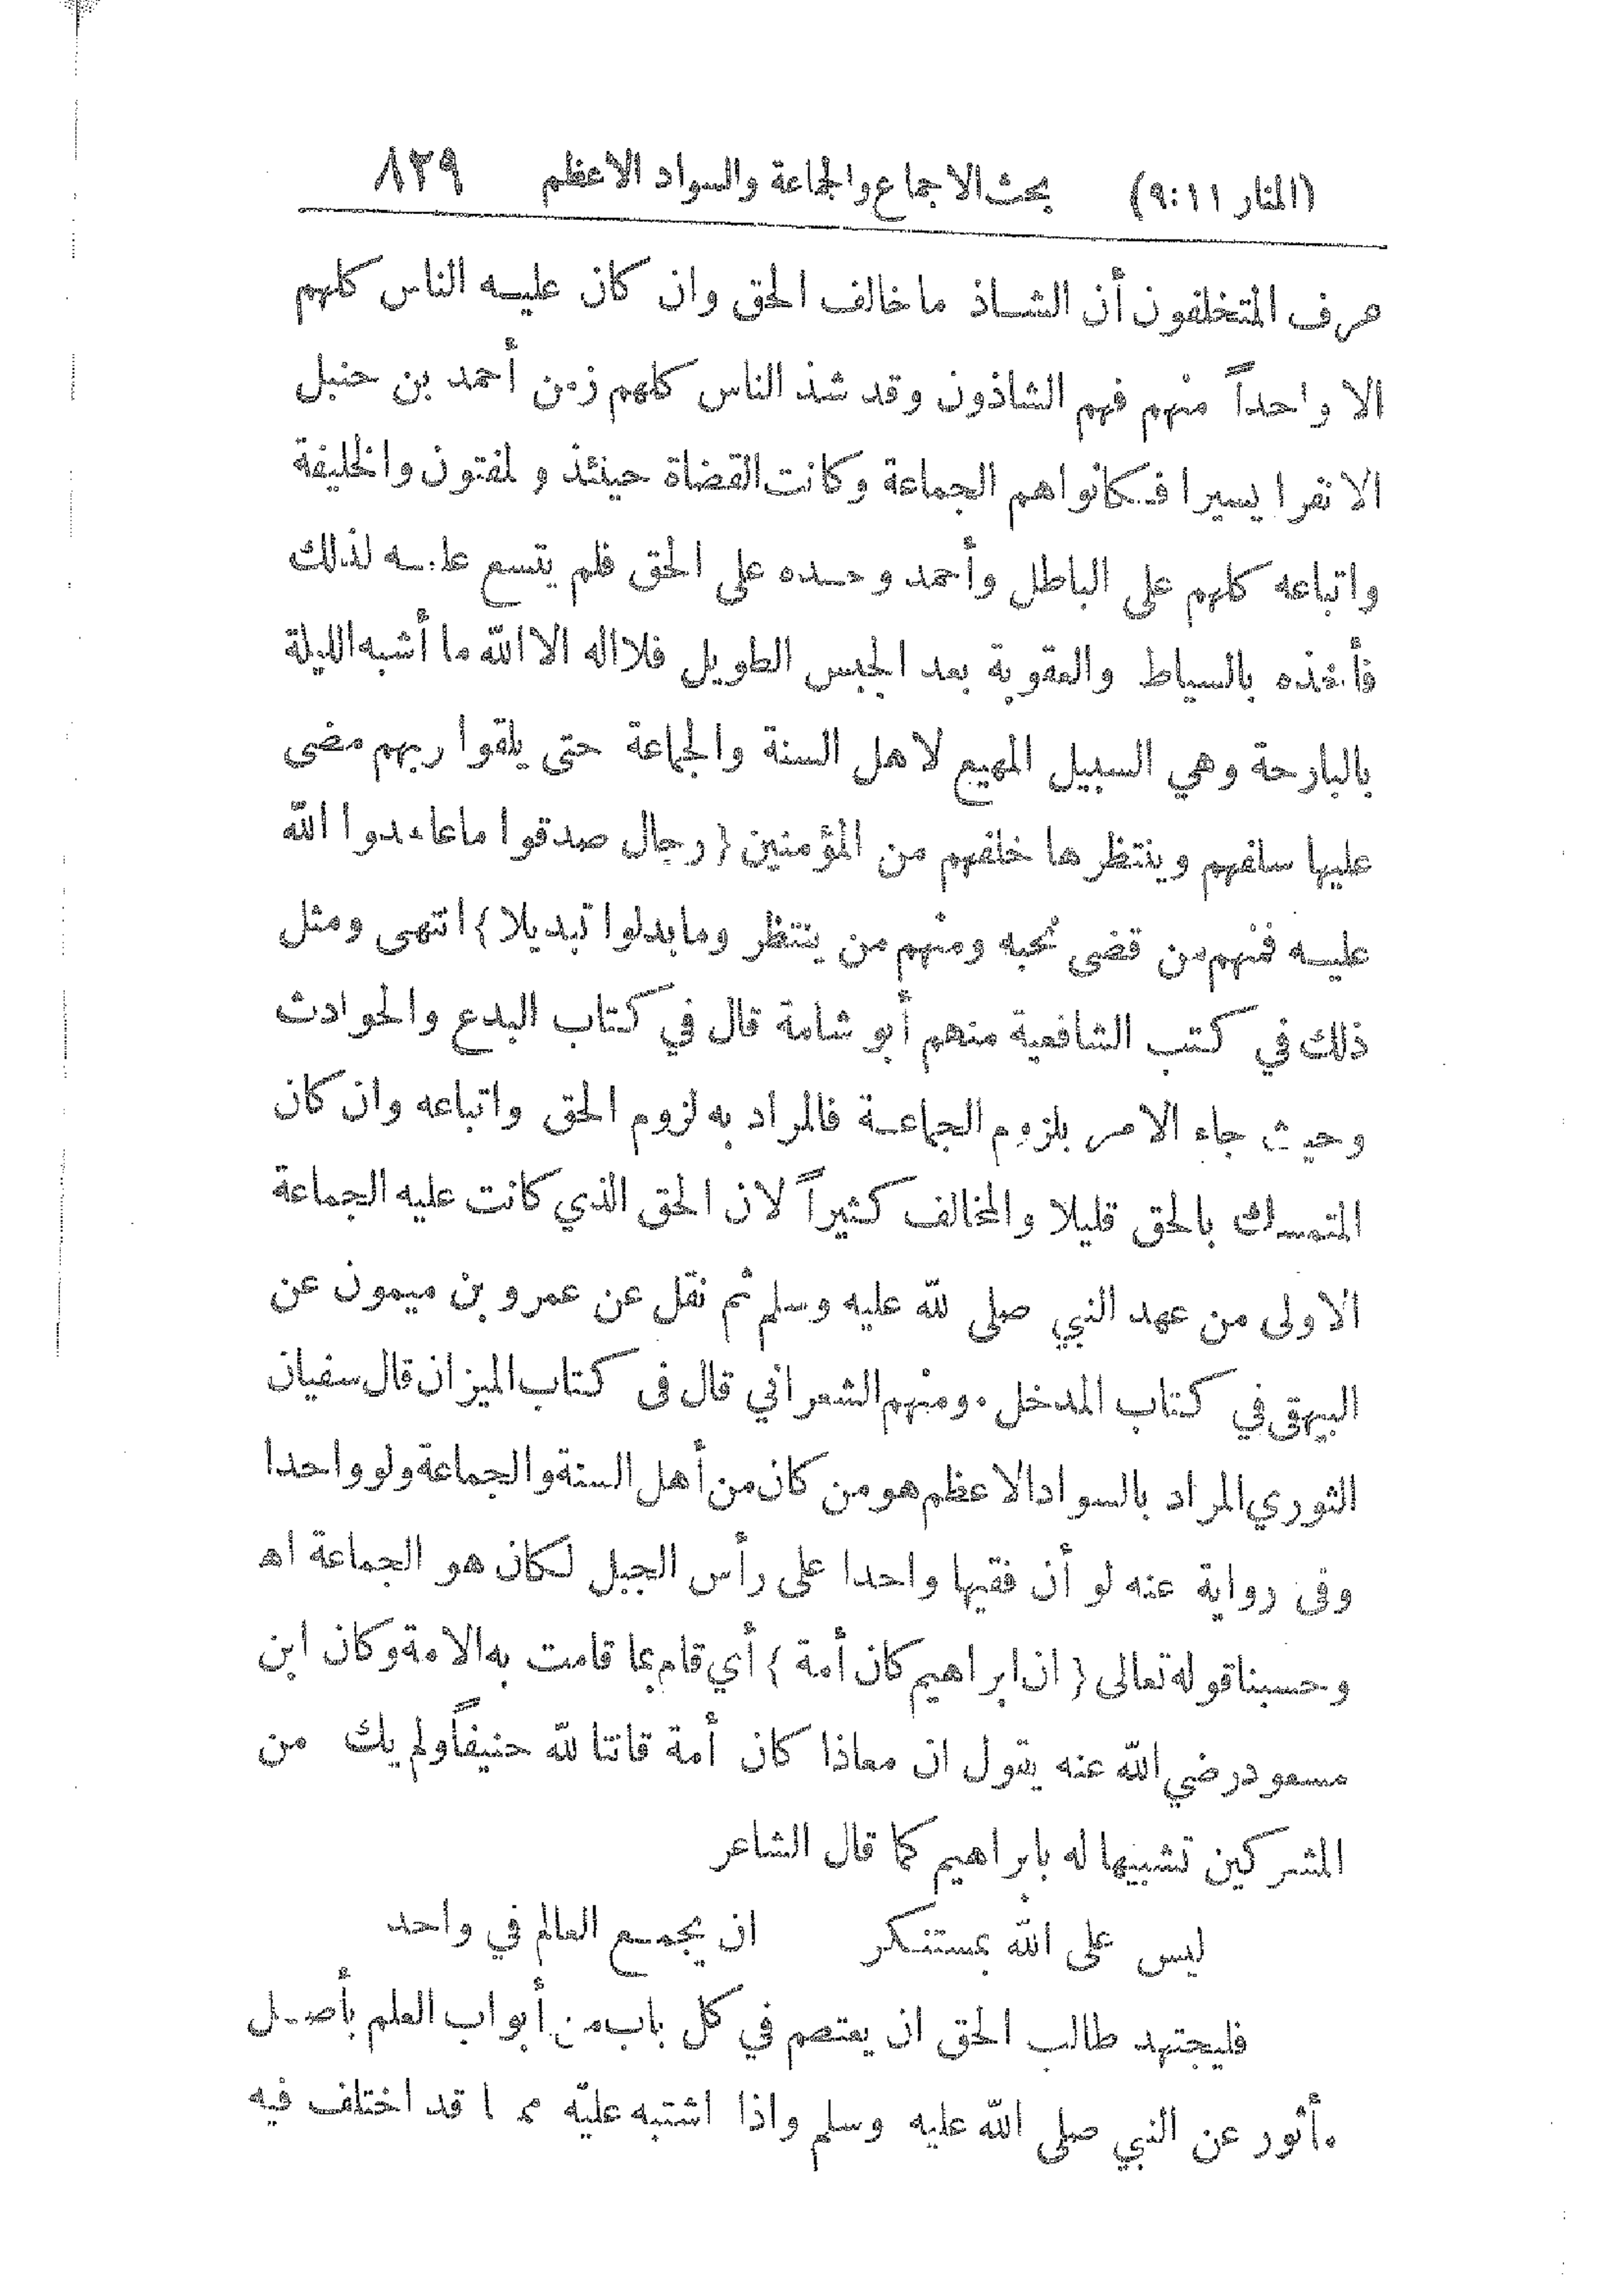 (المنار ٩:١١) بحث الاجماع والجماعة والسواد الاعظم ٨٢٩
عرف المتخلفون أن الشاذ ما خالف الحق وان كان عليه الناس كلهم
الا واحداً منهم فهم الشاذون وقد شذ الناس كلهم زمن أحمد بن حنبل
الا نفرا يسيرا فكانوا هم الجماعة وكانت القضاة حينئذ والمفتون والخليفة
واتباعه كلهم على الباطل وأحمد وحده على الحق فلم يتسع علمه لذلك
فأخذه بالسياط والعقوبة بعد الحبس الطويل فلا اله الا الله ما أشبه الليلة
بالبارحة وهي السبيل المهيع لاهل السنة والجماعة حتى يلقوا ربهم مضى
عليها سلفهم وينتظرها خلفهم من المؤمنين {رجال صدقوا ما عاهدوا الله
عليه فمنهم من قضى نحبه ومنهم من ينتظر وما بدلوا تبديلا} انتهى ومثل
ذلك في كتب الشافعية منهم أبو شامة قال في كتاب البدع والحوادث
وحيث جاء الامر بلزوم الجماعة فالمراد به لزوم الحق واتباعه وان كان
المتمسك بالحق قليلا والمخالف كثيراً لان الحق الذي كانت عليه الجماعة
الاولى من عهد النبي صلى الله عليه وسلم ثم نقل عن عمرو بن ميمون عن
البيهقي في كتاب المدخل . ومنهم الشعراني قال فى كتاب الميزان قال سفيان
الثوري المراد بالسواد الاعظم هو من كان من أهل السنة والجماعة ولو واحدا
وفى رواية عنه لو أن فقيها واحدا على رأس الجبل لكان هو الجماعة اهـ
وحسبنا قوله تعالى {ان ابراهيم كان أمة} أي قام بما قامت به الامة وكان ابن
مسعود رضي الله عنه يقول ان معاذا كان أمة قانتا لله حنيفاً ولم يك من
المشركين تشبيها له بابراهيم كما قال الشاعر
ليس على الله بمستنكر ان يجمع العالم في واحد
فليجتهد طالب الحق ان يعتصم في كل باب من أبواب العلم بأصل
مأثور عن النبي صلى الله عليه وسلم واذا اشتبه عليه مما قد اختلف فيه